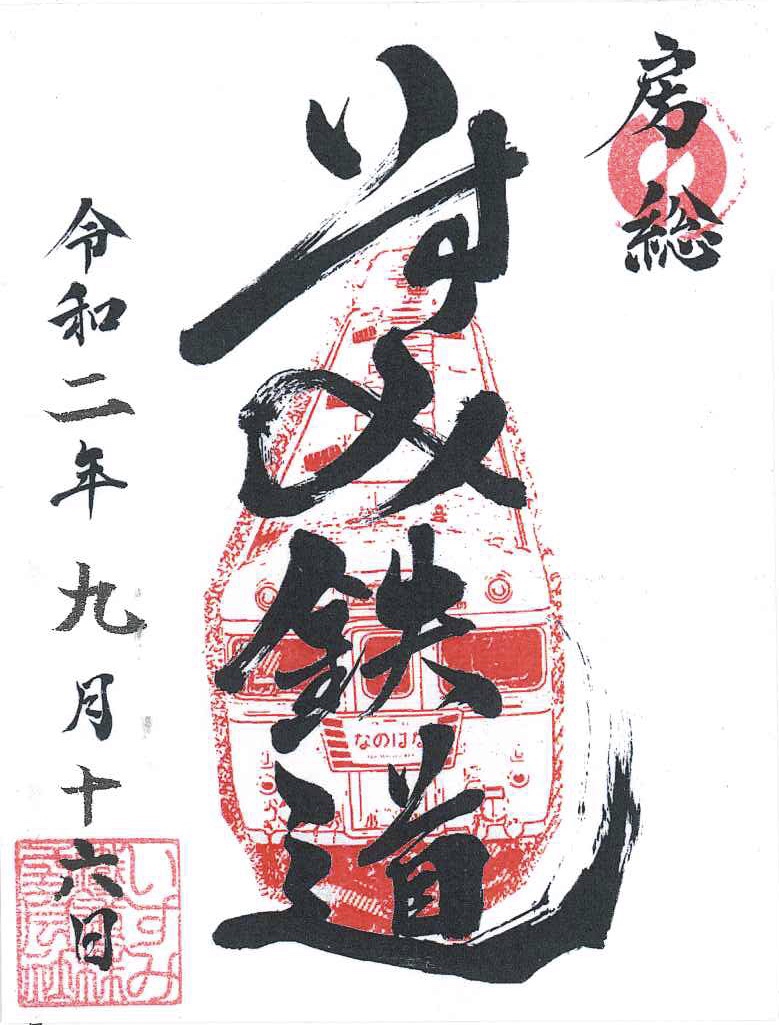 房総
いすみ鉄道
なのはな
令和二年九月十六日
いすみ
鉄道株
式会社